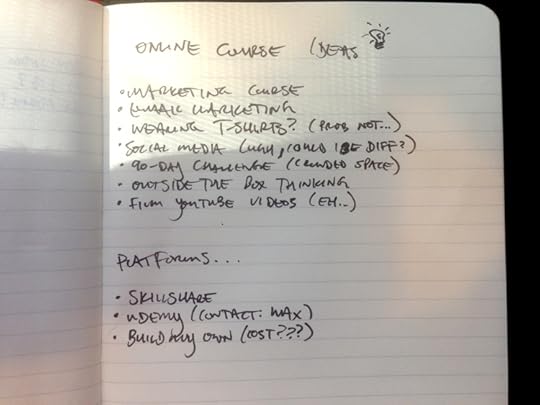 ONLINE COURSE IDEAS
• MARKETING COURSE
• EMAIL MARKETING
• WEARING T-SHIRTS? (PROB NOT...)
• SOCIAL MEDIA (UGH, COULD BE DIFF?)
• 90-DAY CHALLENGE (CROWDED SPACE)
• OUTSIDE THE BOX THINKING
• FILM YOUTUBE VIDEOS (EH..)
PLATFORMS...
• SKILLSHARE
• UDEMY (CONTACT: MAX)
• BUILD MY OWN (COST???)